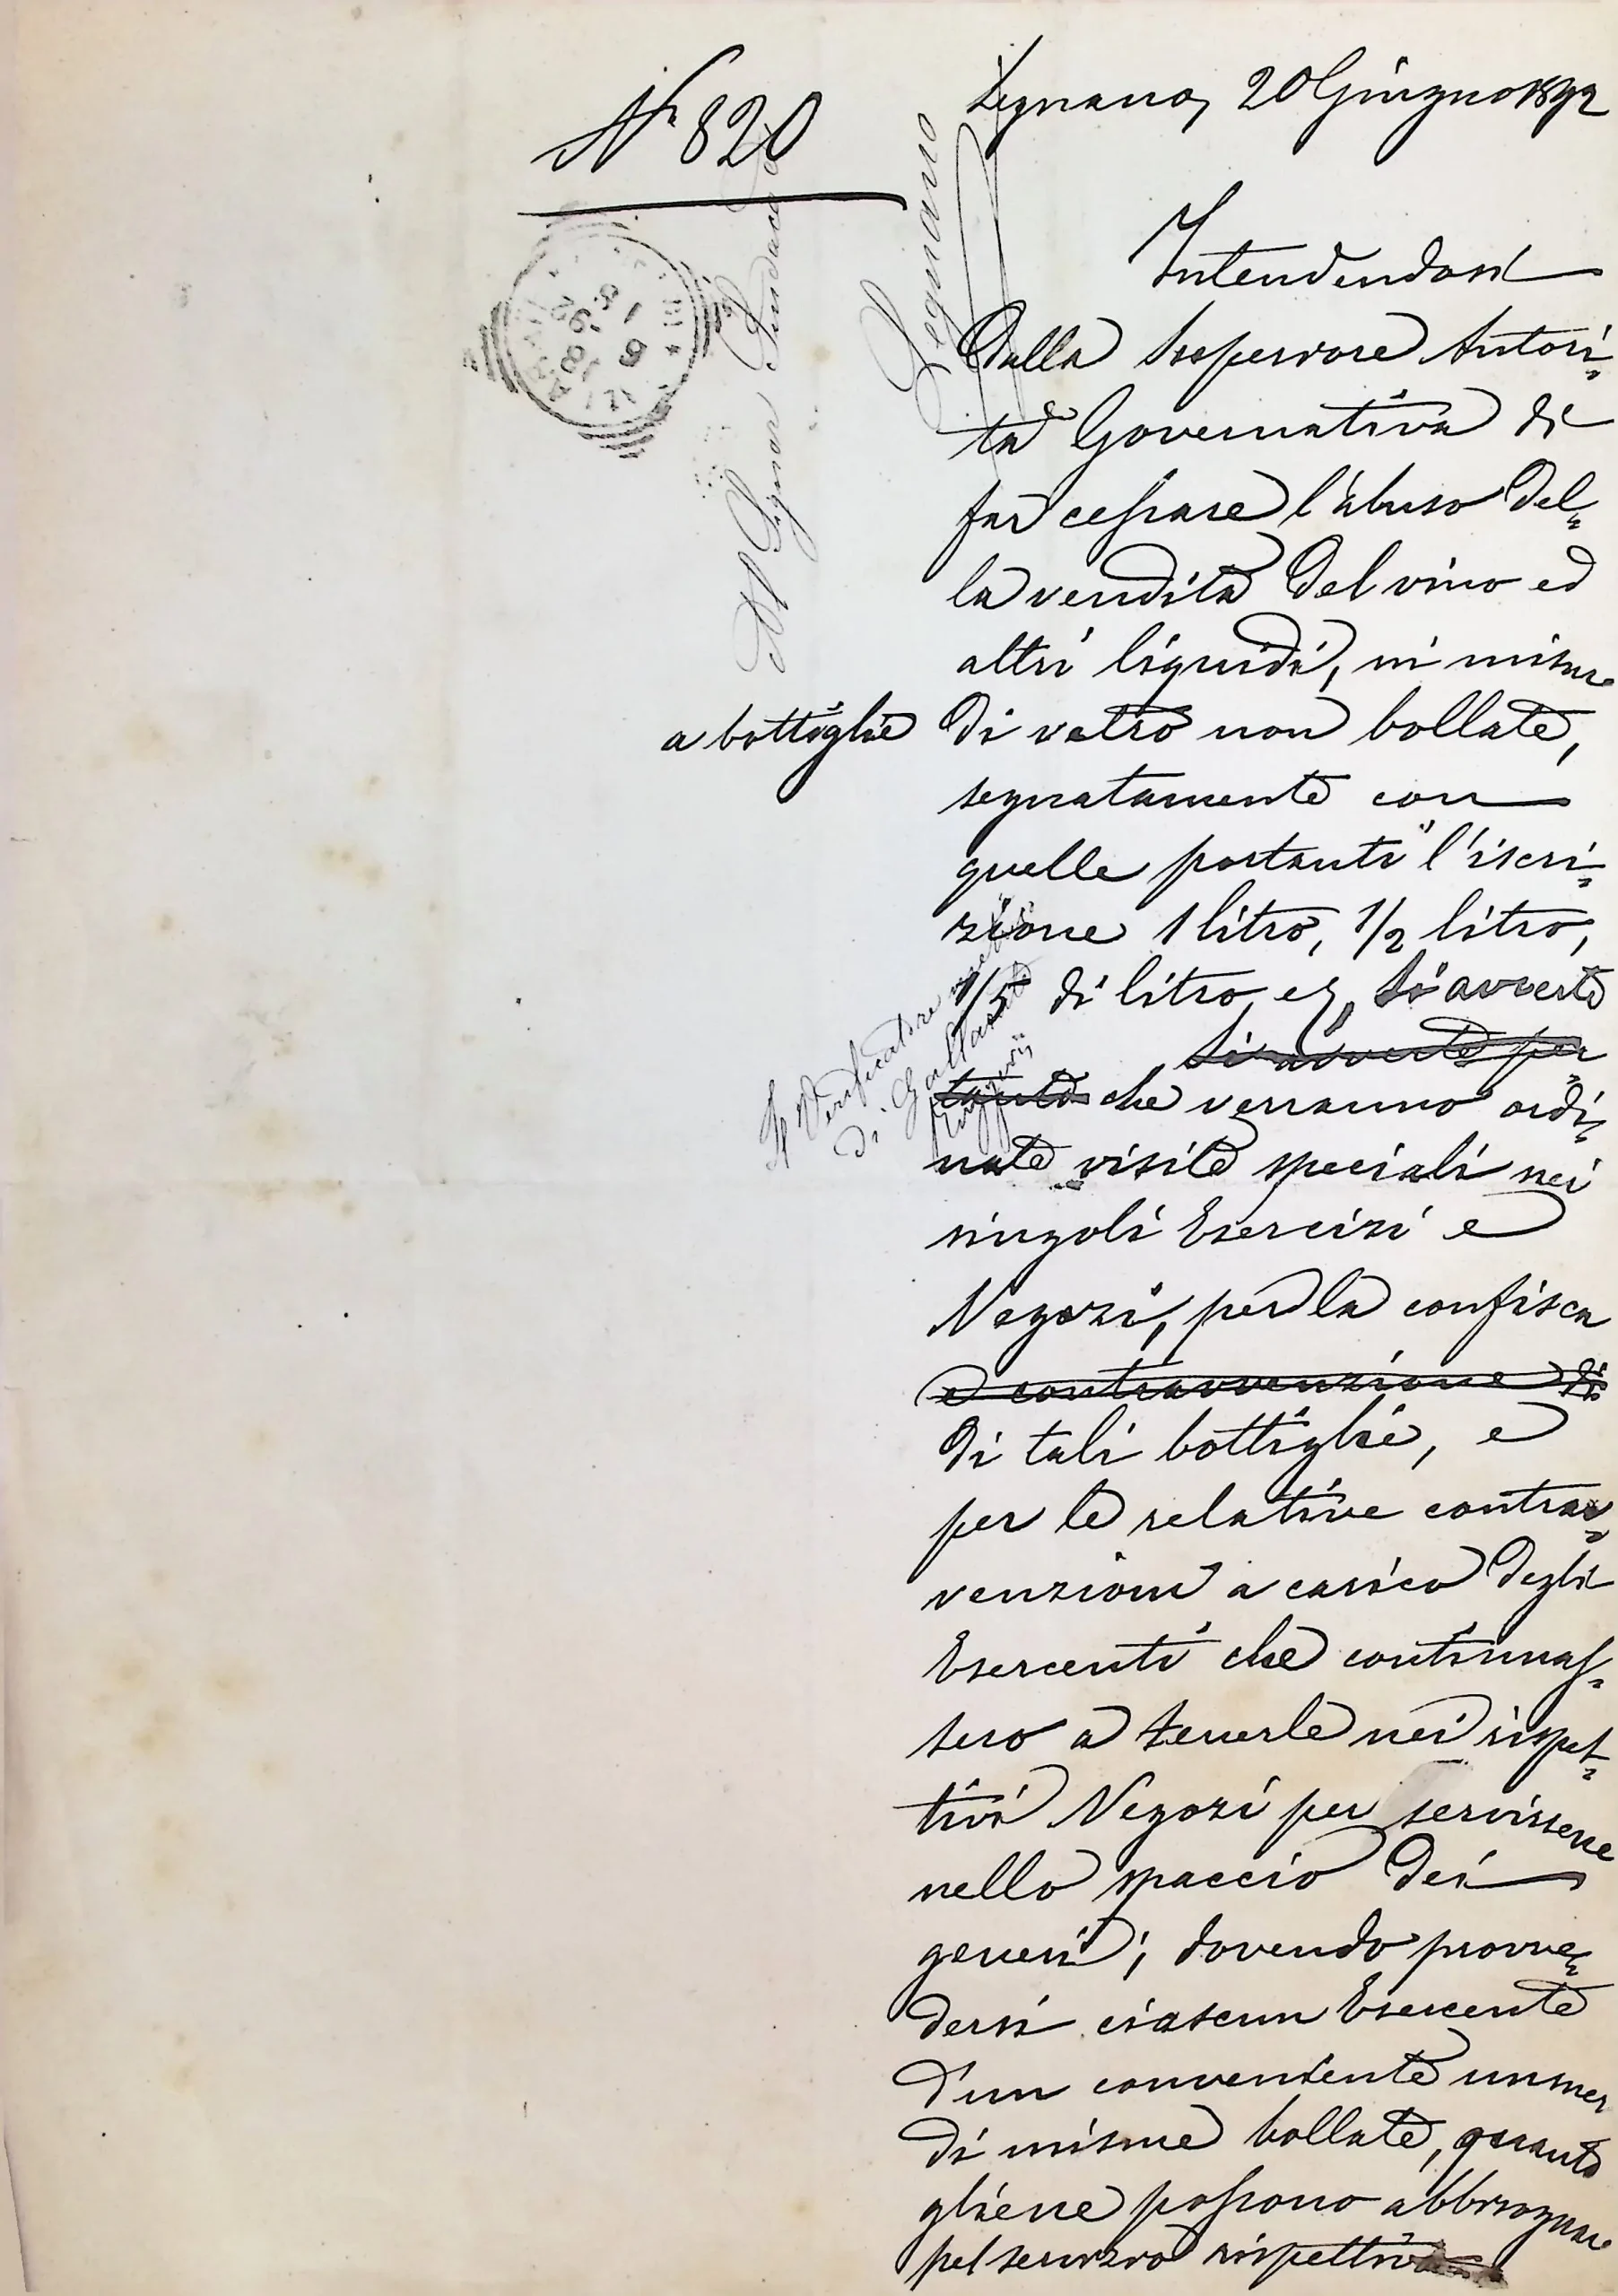 Nº 820
Legnano, 20 Giugno 1892
Al Signor Sindaco di
Legnano
Intendendosi
dalla Superiore Autori=
tà Governativa di
far cessare l'abuso del=
la vendita del vino ed
altri liquidi, in misure
a bottiglie di vetro non bollate,
segnatamente con
quelle portanti l'iscri=
zione 1 litro, 1/2 litro,
1/5 di litro, e, Si avverte
Si avverte per
tanto che verranno ordi=
nate visite speciali nei
singoli Esercizi e
Negozi, per la confisca
e contravvenzione di
di tali bottiglie, e
per le relative contrav=
venzioni a carico degli
Esercenti che continuas=
sero a tenerle nei rispet=
tivi Negozi per servirsene
nello spaccio dei
generi; dovendo provve=
dersi ciascun Esercente
d'un conveniente numer
di misure bollate, quante
gliene possono abbisognare
pel servizio rispettivo
Il Verificatore
di Gallarate